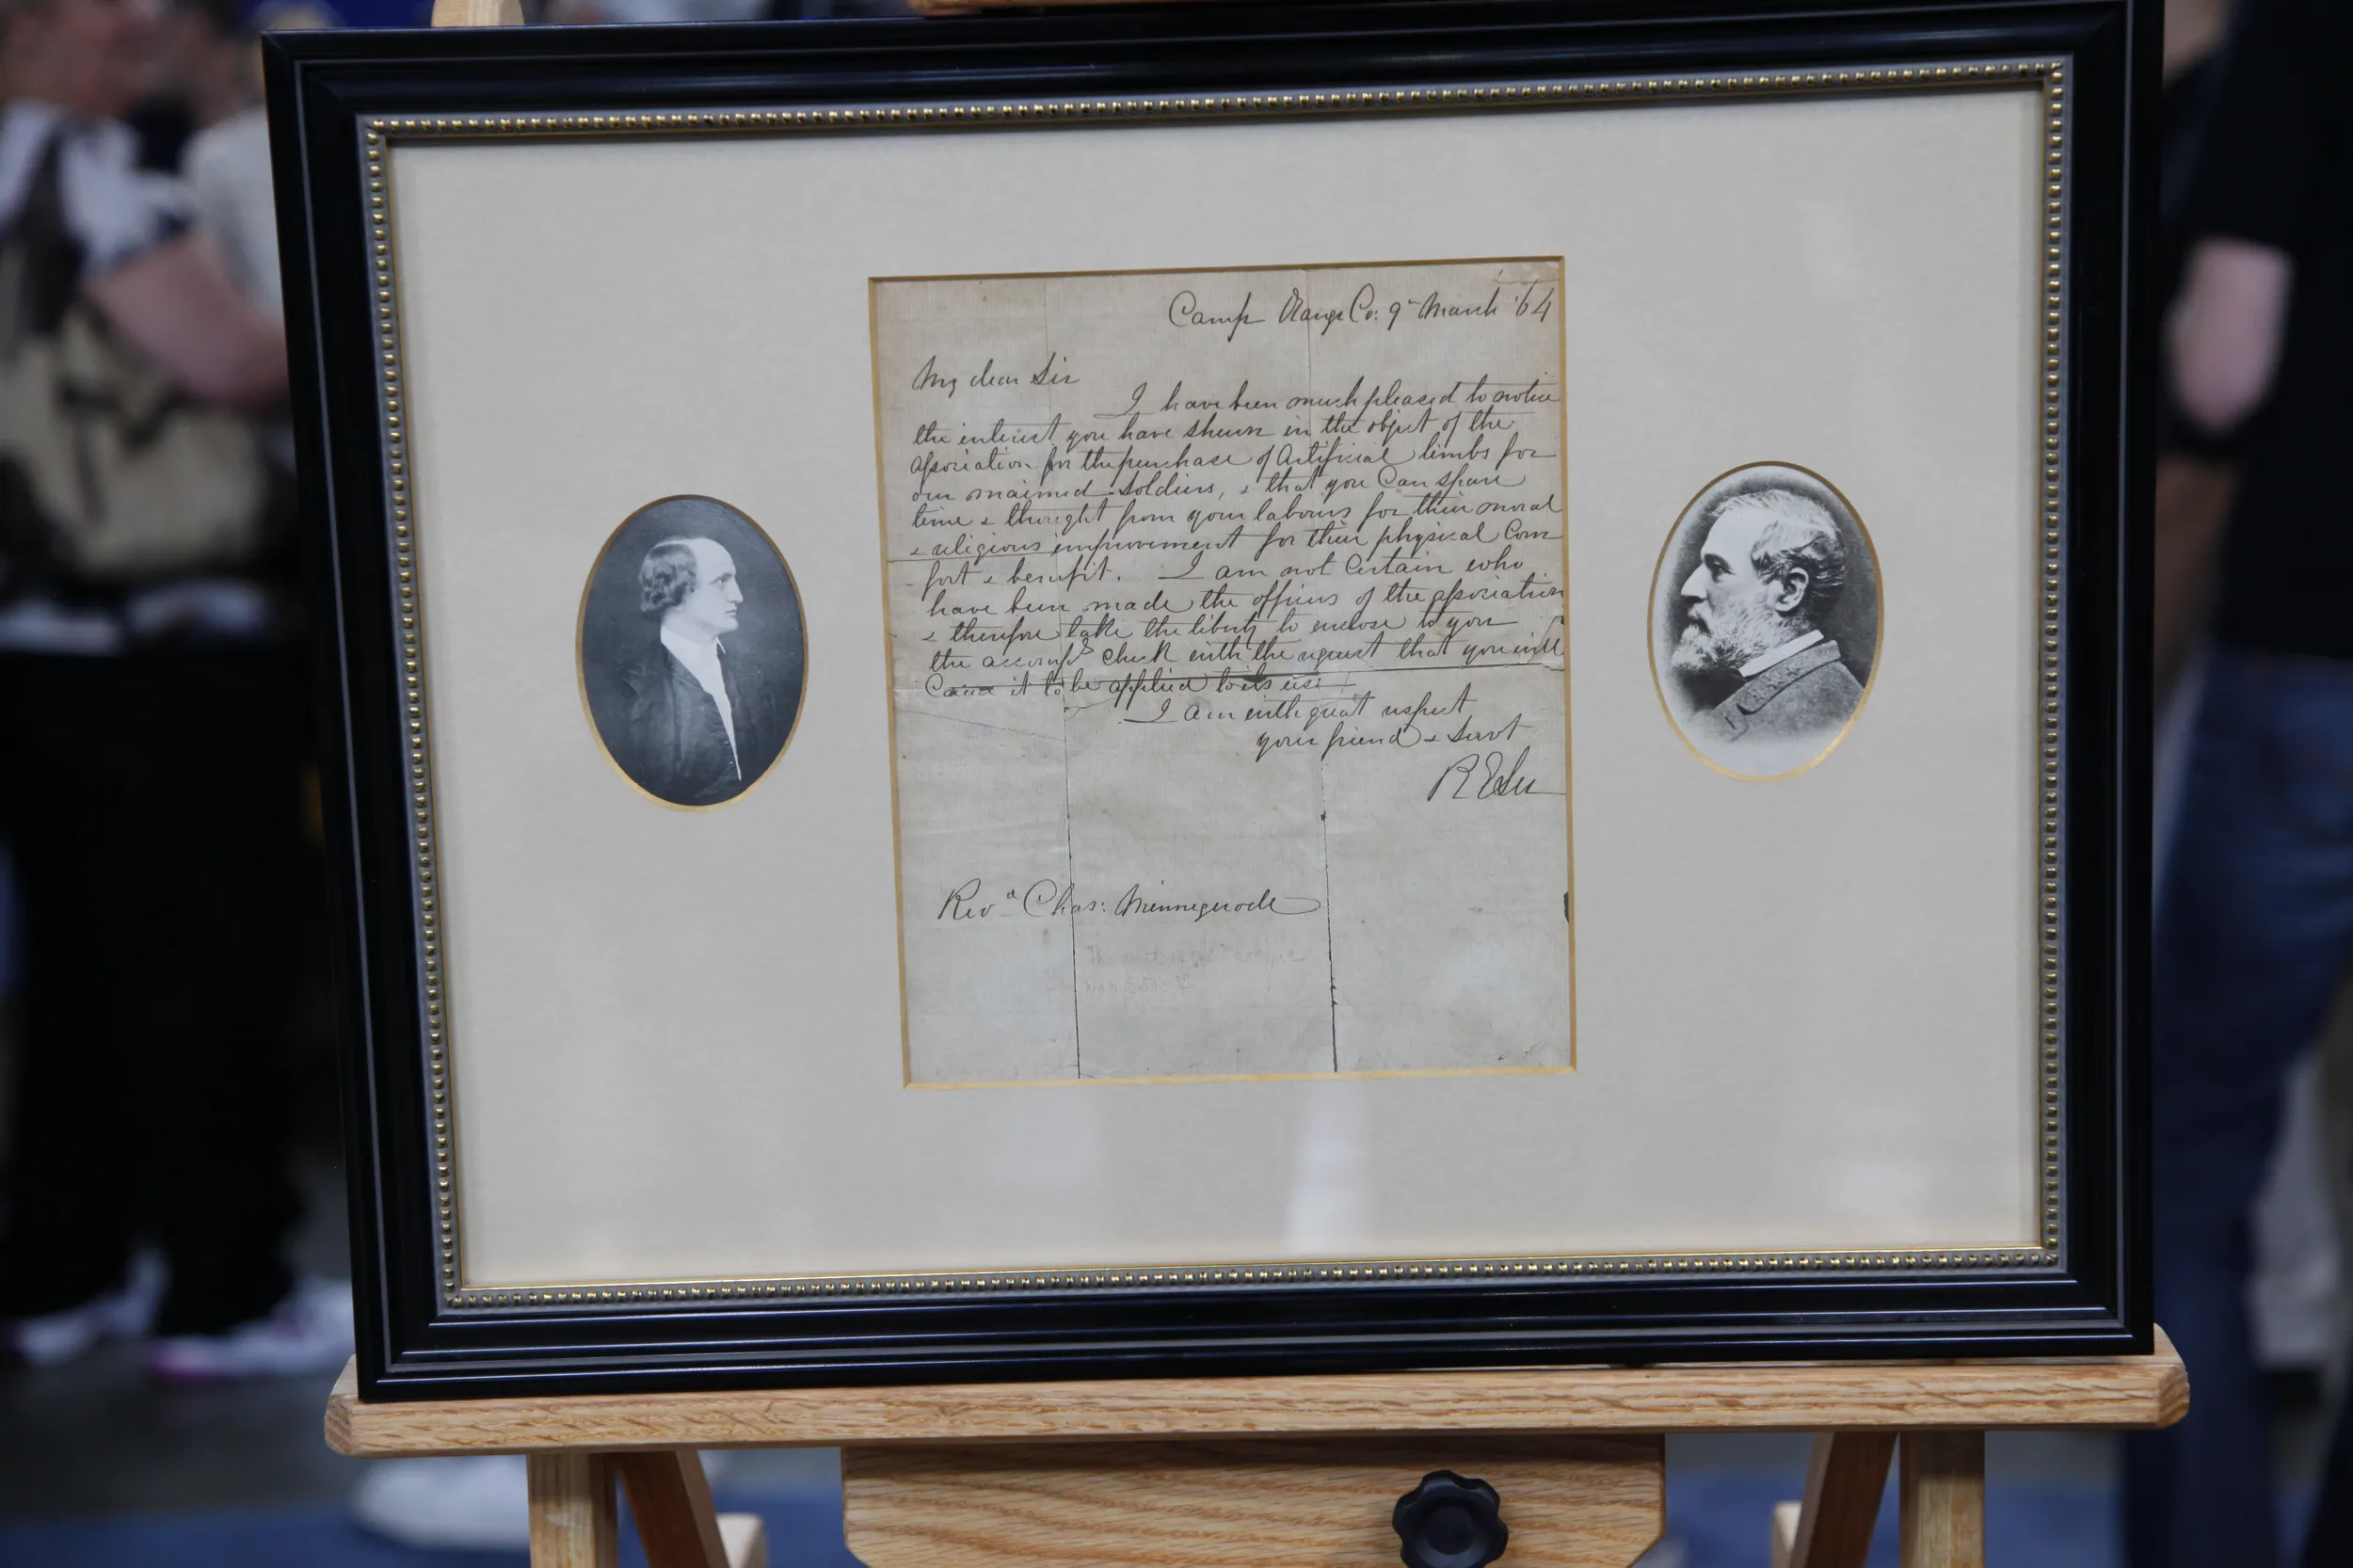 Camp Orange Co: 9th March '64
My dear Sir
I have been much pleased to notice
the interest you have shewn in the object of the
association for the purchase of Artificial limbs for
our maimed soldiers, & that you can spare
time & thought from your labours for their moral
& religious improvement for their physical Com
fort & benefit. I am not Certain who
have been made the officers of the association
& therefore take the liberty to enclose to you
the accompg check with the request that you will
Cause it to be applied to its use
I am with great respect
your friend & Servt
R E Lee
Revd Chas: Minnegerode
The
was